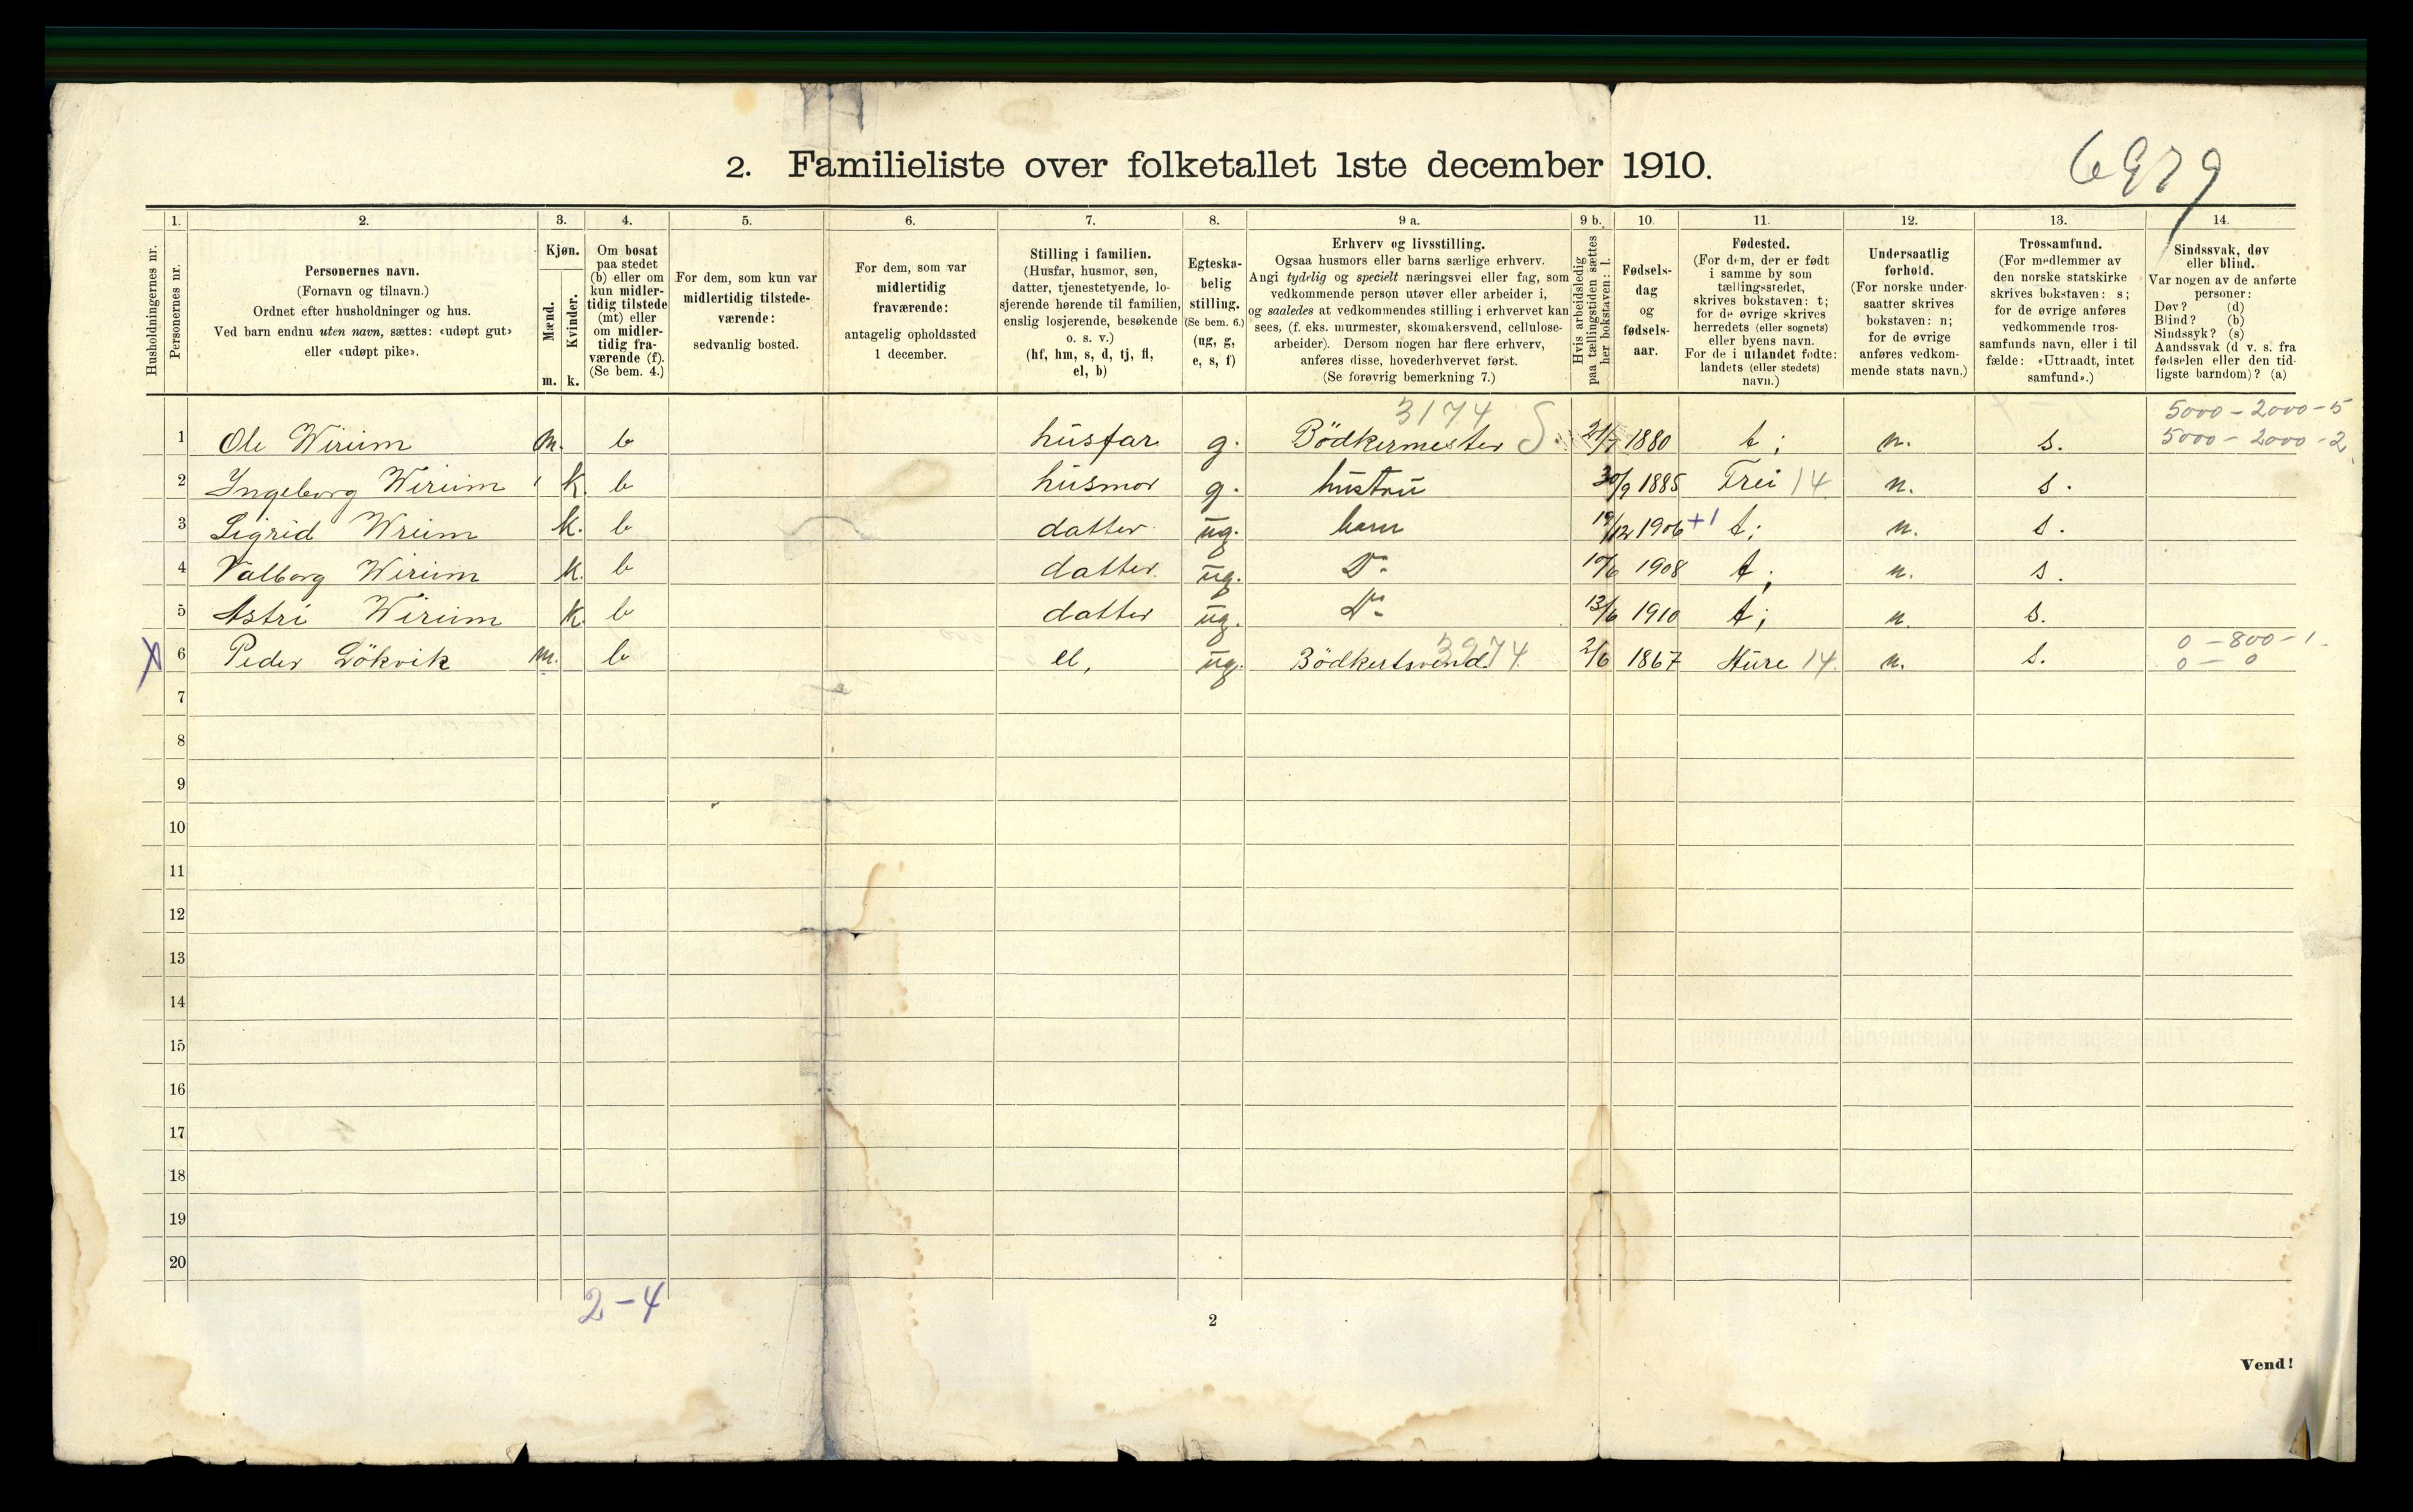 6979
2. Familieliste over folketallet 1ste december 1910.
1. 2. 3. 4. 5. 6. 7. 8. 9 a. 9 b. 10. 11. 12. 13. 14.
Husholdningernes nr.
Personernes nr.
Personernes navn.
(Fornavn og tilnavn.)
Ordnet efter husholdninger og hus.
Ved barn endnu uten navn, sættes: «udøpt gut»
eller «udøpt pike».
Kjøn.
Mænd.
Kvinder.
m. k.
Om bosat
paa stedet
(b) eller om
kun midler-
tidig tilstede
(mt) eller
om midler-
tidig fra-
værende (f).
(Se bem. 4.)
For dem, som kun var
midlertidig tilstede-
værende:
sedvanlig bosted.
For dem, som var
midlertidig
fraværende:
antagelig opholdssted
1 december.
Stilling i familien.
(Husfar, husmor, søn,
datter, tjenestetyende, lo-
sjerende hørende til familien,
enslig losjerende, besøkende
o. s. v.)
(hf, hm, s, d, tj, fl,
el, b)
Egteska-
belig
stilling.
(Se bem. 6.)
(ug, g,
e, s, f)
Erhverv og livsstilling.
Ogsaa husmors eller barns særlige erhverv.
Angi tydelig og specielt næringsvei eller fag, som
vedkommende person utøver eller arbeider i,
og saaledes at vedkommendes stilling i erhvervet kan
sees, (f. eks. murmester, skomakersvend, cellulose-
arbeider). Dersom nogen har flere erhverv,
anføres disse, hovederhvervet først.
(Se forøvrig bemerkning 7.)
Hvis arbeidsledig
paa tællingstiden sættes
her bokstaven: l.
Fødsels-
dag
og
fødsels-
aar.
Fødested.
(For dem, der er født
i samme by som
tællingsstedet,
skrives bokstaven: t;
for de øvrige skrives
herredets (eller sognets)
eller byens navn.
For de i utlandet fødte:
landets (eller stedets)
navn.)
Undersaatlig
forhold.
(For norske under-
saatter skrives
bokstaven: n;
for de øvrige
anføres vedkom-
mende stats navn.)
Trossamfund.
(For medlemmer av
den norske statskirke
skrives bokstaven: s;
for de øvrige anføres
vedkommende tros-
samfunds navn, eller i til
fælde: «Uttraadt, intet
samfund».)
Sindssvak, døv
eller blind.
Var nogen av de anførte
personer:
Døv? (d)
Blind? (b)
Sindssyk? (s)
Aandssvak (d v. s. fra
fødselen eller den tid-
ligste barndom)? (a)
3174 5000 - 2000 - 5
1 Ole Wirum m. b husfar g. Bödkermester S. 21/7 1880 t; n. s. 5000 - 2000 - 2
2 Ingeborg Wirum k. b husmor g. hustru 30/9 1885 Frei 14 n. s.
3 Sigrid Wrium k. b datter ug. barn 19/12 1906 +1 t; n. s.
4 Valborg Wirum k. b datter ug. Do 10/6 1908 t; n. s.
5 Astri Wirum k. b datter ug. Do 13/6 1910 t; n. s.
3274 0 - 800 - 1
X 6 Peder Lökvik m. b el, ug. Bödkertsvend 2/6 1867 Sture 14. n. s. 0 - 0
7
8
9
10
11
12
13
14
15
16
17
18
19
20
2-4
2
Vend!